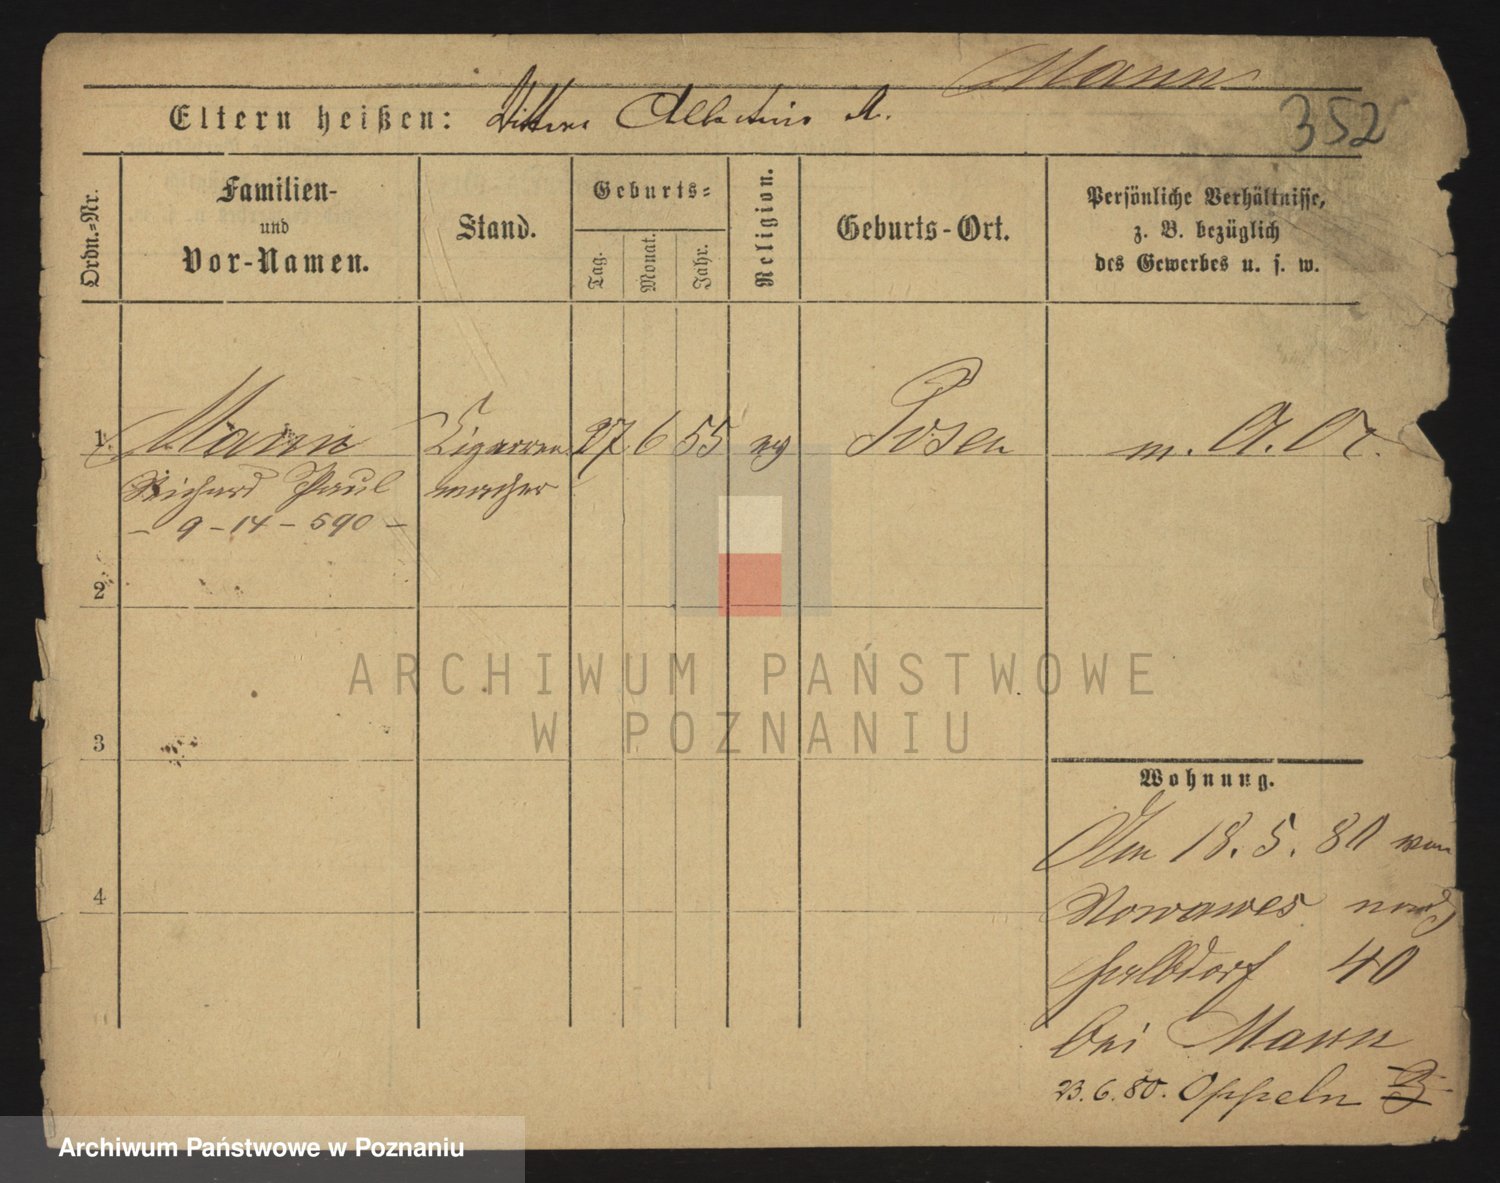 Mann
352
Eltern heißen: Albertine A.
Ordn.=Nr.
Familien-
und
Vor-Namen.
Stand.
Geburts=
Tag.
Monat.
Jahr.
Religion.
Geburts-Ort.
Persönliche Verhältnisse,
z. B. bezüglich
des Gewerbes u. s. w.
1 Mann Cigarren 27 6 55 ev Posen m. A. Ot.
Richard Paul macher
— 9 - 14 - 590 —
2
3
4
Wohnung.
Am 18. 5. 80 von
Nowawes nach
Halbdorf 40
bei Mann
23. 6. 80. Oppeln
ARCHIWUM PAŃSTWOWE
W POZNANIU
Archiwum Państwowe w Poznaniu